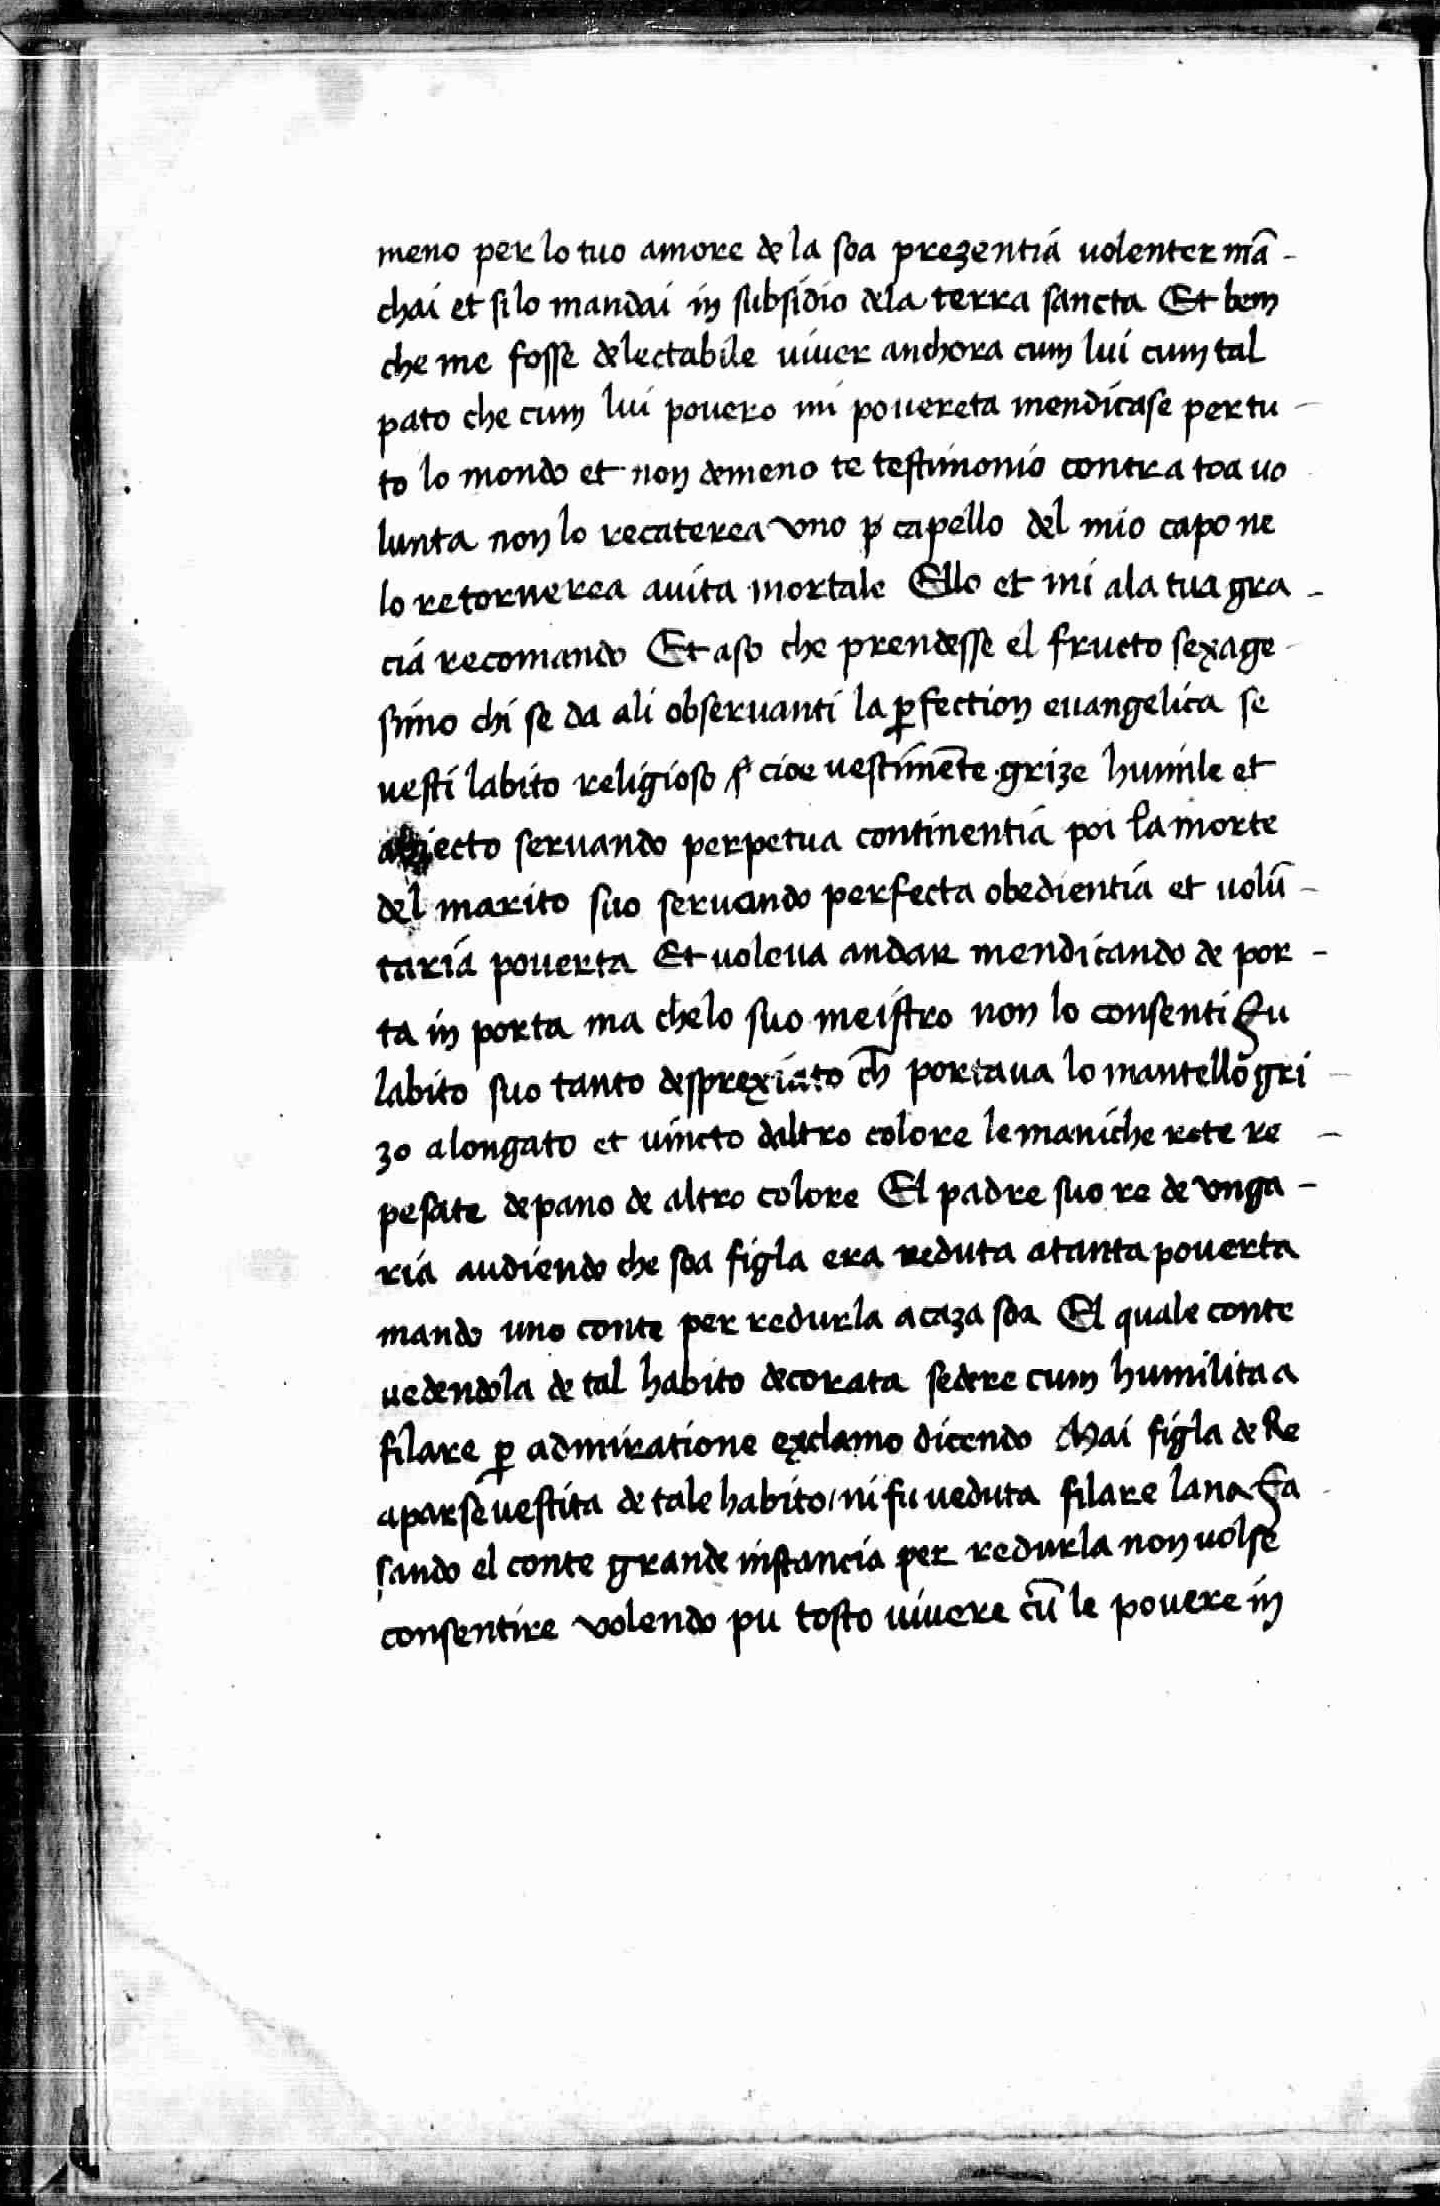 meno per lo tuo amore de la soa prezentia uolenter mā -
chai et si lo mandai in subsidio dela terra sancta Et bem
che me fosse delectabile viuer anchora cum lui cum tal
pato che cum lui pouero mi pouereta mendicase per tu -
to lo mondo et non demeno te testimonio contra toa uo
lunta non lo recaterea vno ꝑ capello del mio capo ne
lo retornerea auita mortale Ello et mi ala tua gra -
cia recomando Et aso che prendesse el fructo sexage -
simo chi se da ali obseruanti la ꝑfection euangelica se
uesti labito religioso cioe uestimēte grize humile et
abiecto seruando perpetua continentia poi la morte
del marito suo seruando perfecta obedientia et uolū -
taria pouerta Et uoleua andar mendicando de por -
ta in porta ma che lo suo meistro non lo consenti Fu
labito suo tanto desprexiato ch̄ portaua lo mantello gri -
zo alongato et uincto daltro colore le maniche rote re -
pesate de pano de altro colore El padre suo re de vnga -
ria audiendo che soa figla era reduta atanta pouerta
mando uno conte per redurla acaza soa El quale conte
uedendola de tal habito decorata sedere cum humilita a
filare ꝑ admiratione exclamo dicendo Mai figla de Re
aparse uestita de tale habito / ni fu ueduta filare lana Fa -
sando el conte grande instancia per redurla non uolse
consentire volendo pu tosto uiuere cū le pouere in